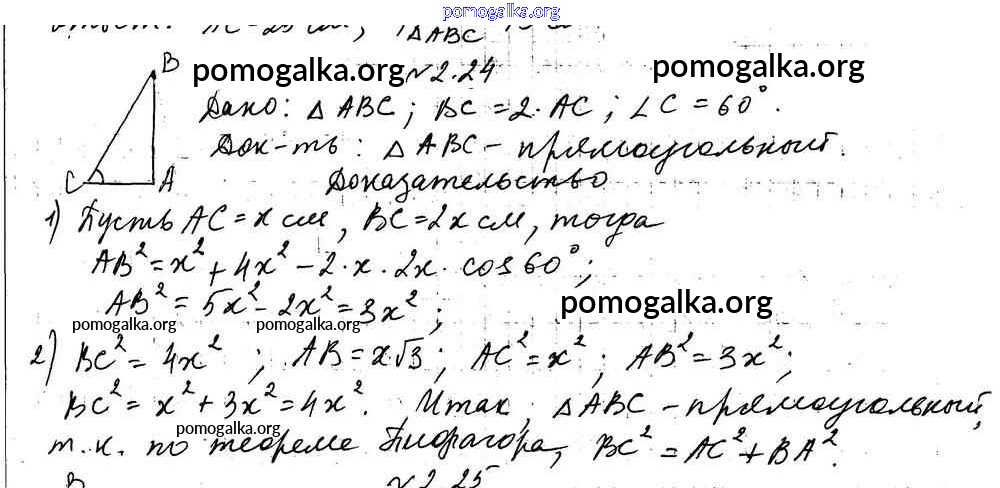 pomogalka.org
Ответ: AC = 25 см, △ABC
B
pomogalka.org
№2.24
pomogalka.org
Дано: △ABC; BC = 2·AC; ∠C = 60°.
Док-ть: △ABC - прямоугольный.
C
A
Доказательство
1) Пусть AC = x см, BC = 2x см, тогда
AB² = x² + 4x² - 2·x·2x·cos60°;
AB² = 5x² - 2x² = 3x²;
pomogalka.org
pomogalka.org
pomogalka.org
2) BC² = 4x²; AB = x√3; AC² = x²; AB² = 3x²;
BC² = x² + 3x² = 4x². Итак, △ABC - прямоугольный,
pomogalka.org
т.к. по теореме Пифагора, BC² = AC² + BA².
B
№2.25